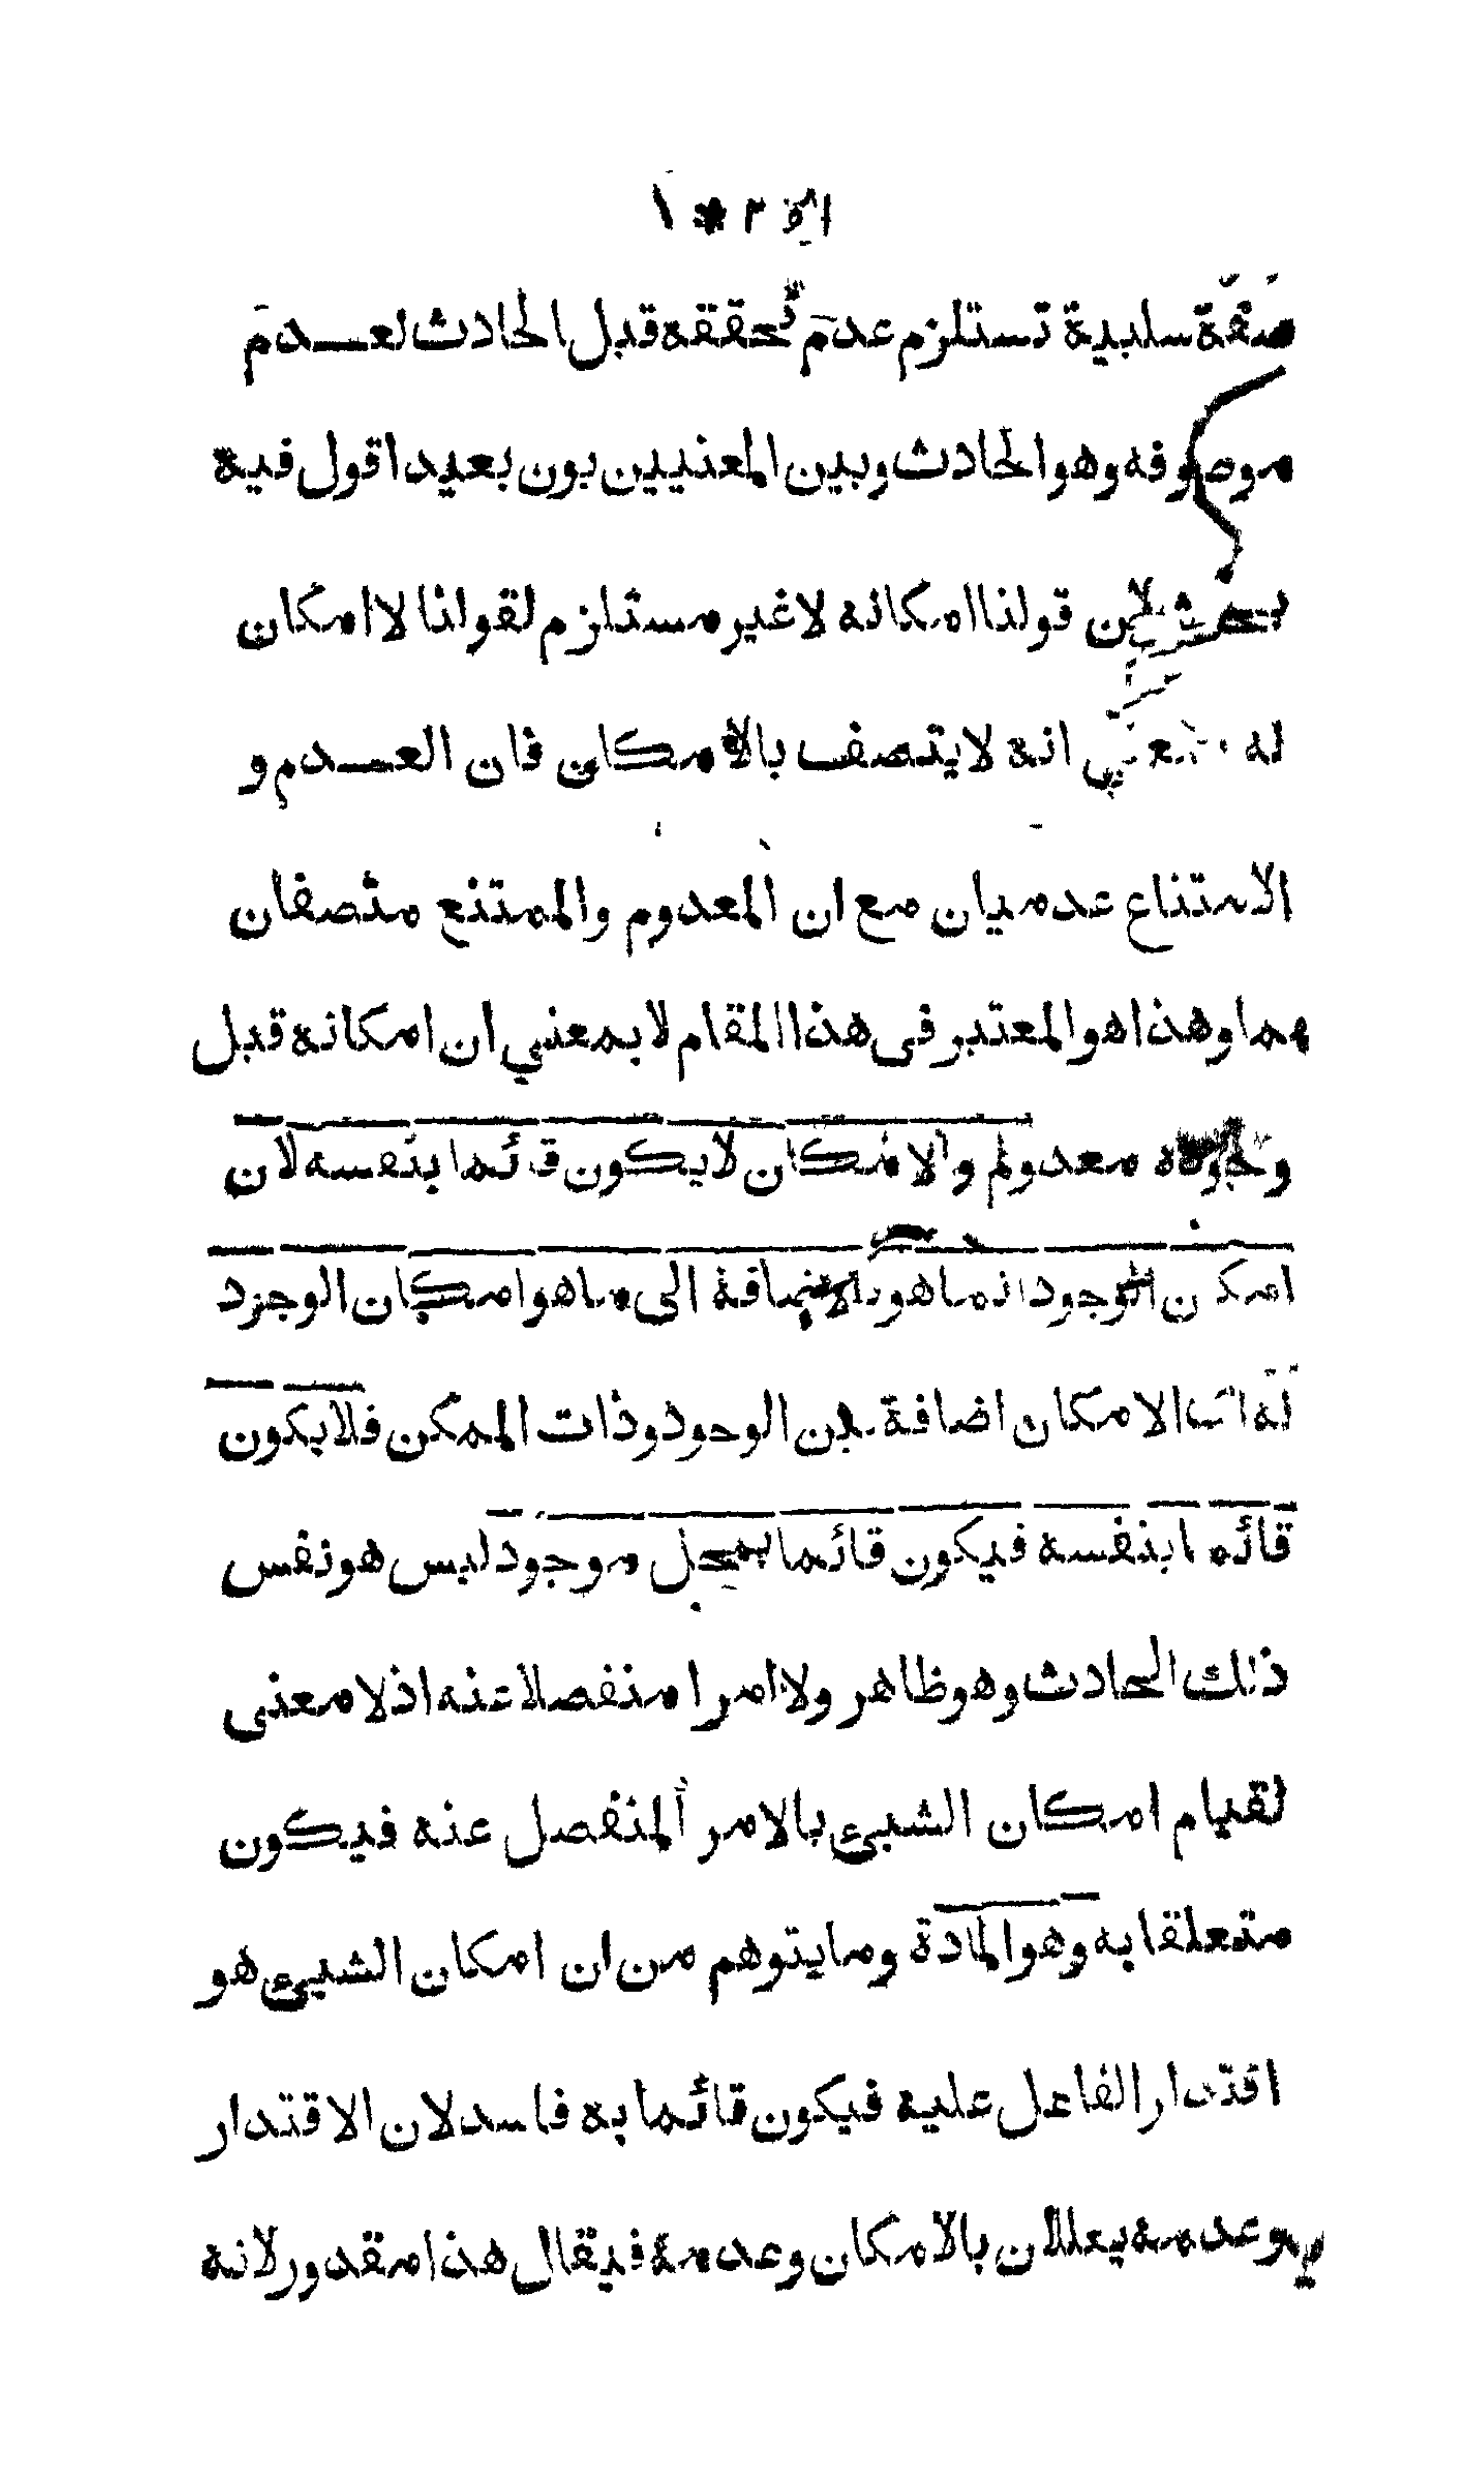 صفة سلبية تستلزم عدم تحققه قبل الحادث لعـــدم
موصوفه وهو الحادث وبين المعنيين بون بعيد اقول فيه
بحث لان قولنا امكانه لا غير مستلزم لقولنا لا امكان
له بمعنى انه لا يتصف بالامكان فان العـــدم و
الامتناع عدميان مع ان المعدوم والممتنع متصفان
بهما وهذا هو المعتبر فى هذا المقام لا بمعنى ان امكانه قبل
وجوده معدوم والامكان لا يكون قائما بنفسه لان
امكان الوجود انما هو بالاضافة الى ما هو امكان الوجود
له الامكان اضافة بين الوجود وذات الممكن فلا يكون
قائما بنفسه فيكون قائما بمحل موجود ليس هو نفس
ذلك الحادث وهو ظاهر ولا امرا منفصلا عنه اذ لا معنى
لقيام امكان الشيئ بالامر المنفصل عنه فيكون
متعلقا به وهو المادة وما يتوهم من ان امكان الشيئ هو
اقتدار الفاعل عليه فيكون قائما به فاسد لان الاقتدار
وعدمه يعللان بالامكان وعدمه فيقال هذا مقدور لانه